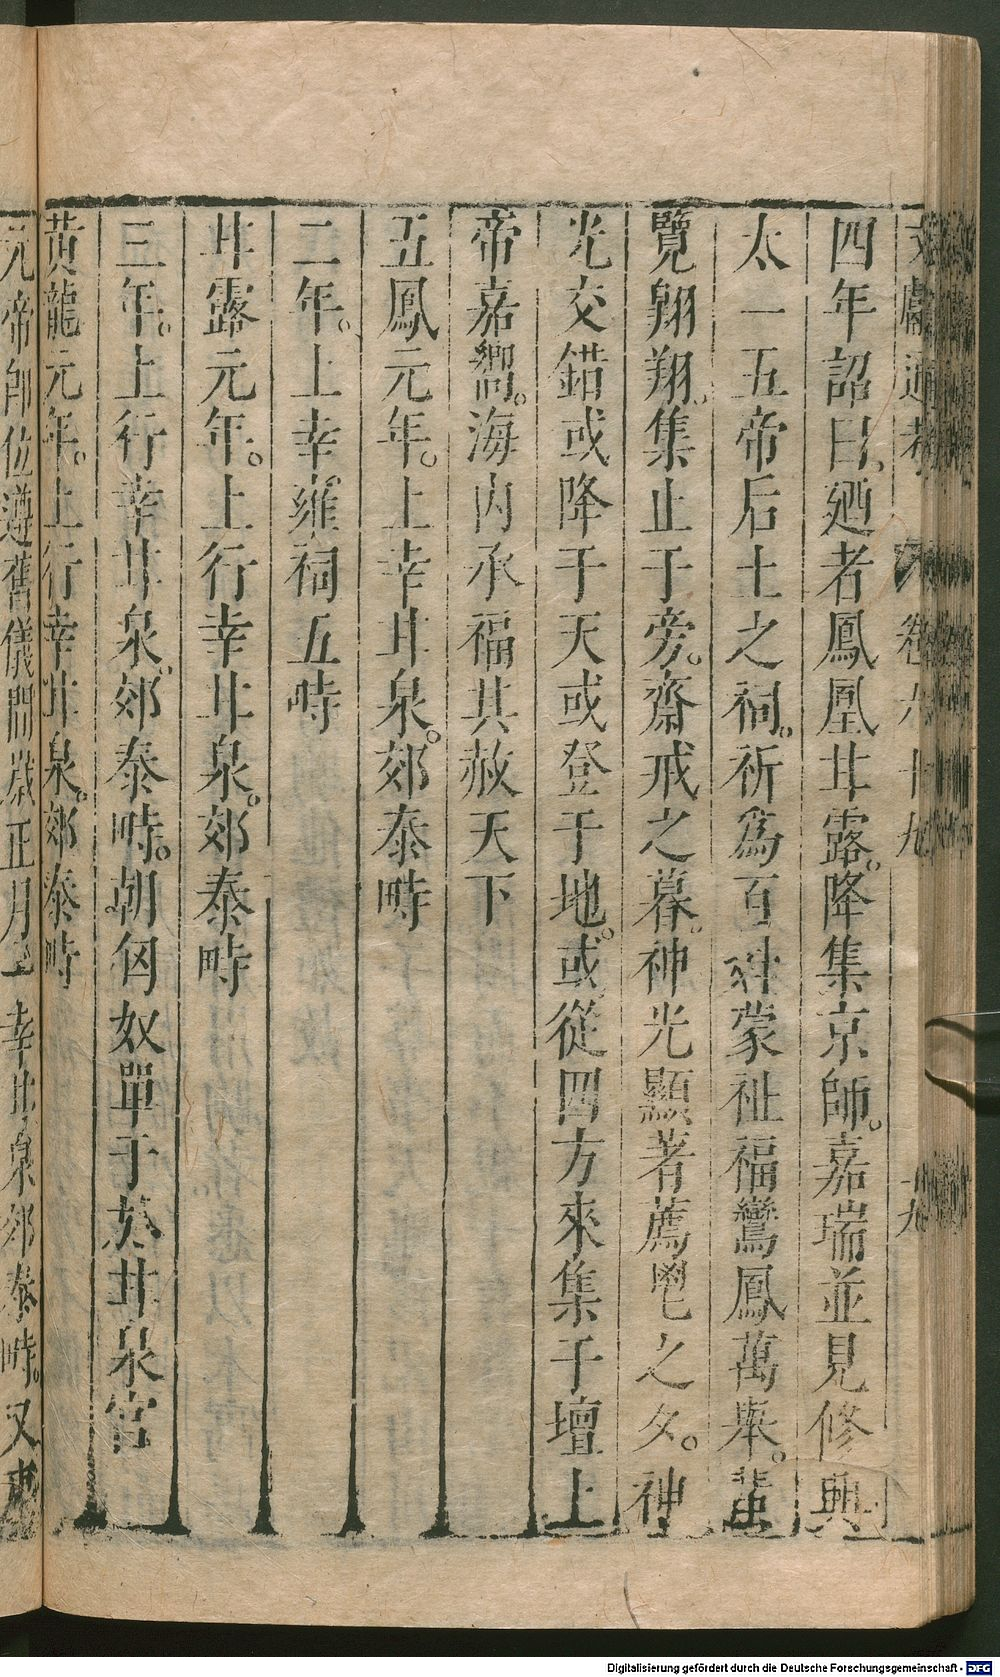 文獻通考 卷六十九 十九
四年詔曰廼者鳳凰甘露。降集京師。嘉瑞並見修興
太一五帝后土之祠。祈爲百姓蒙祉福鸞鳳萬舉。蜚
覽翺翔。集止于旁。齋戒之暮。神光顯著薦鬯之夕。神
光交錯或降于天或登于地。或從四方來集于壇上
帝嘉嚮。海内承福其赦天下
五鳳元年。上幸甘泉。郊泰畤
二年。上幸雍祠五畤
甘露元年。上行幸甘泉。郊泰畤
三年。上行幸甘泉。郊泰畤。朝匈奴單于於甘泉宮
黃龍元年。上行幸甘泉。郊泰畤
元帝卽位遵舊儀間歲正月上幸甘泉郊泰畤。又東
Digitalisierung gefördert durch die Deutsche Forschungsgemeinschaft - DFG